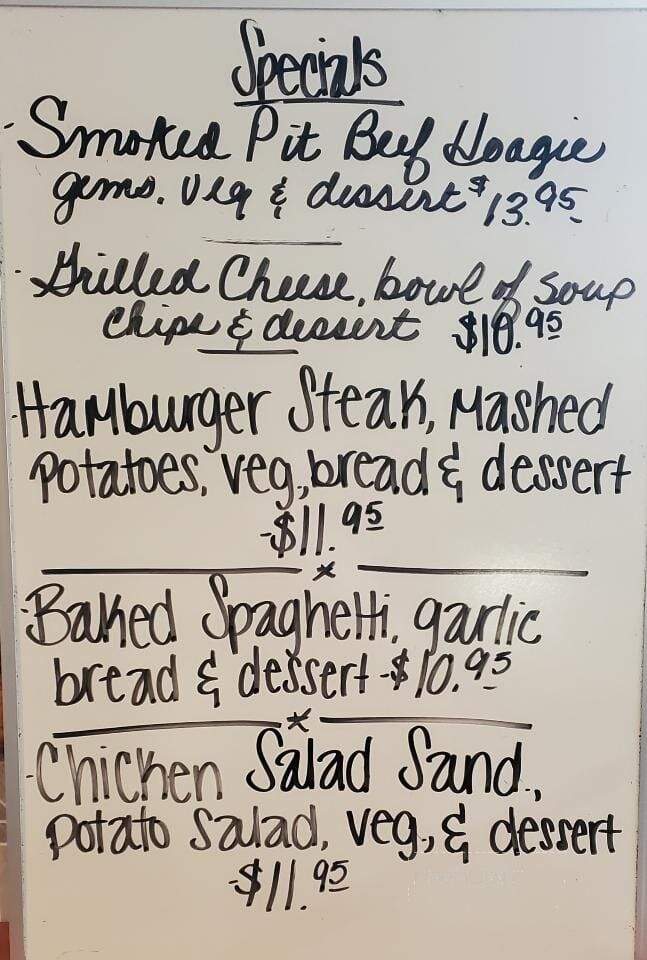 Specials
- Smoked Pit Beef Hoagie
gems, veg & dessert $13.95
- Grilled Cheese, bowl of soup
chips & dessert $10.95
- Hamburger Steak, Mashed
potatoes, veg, bread & dessert
- $11.95
- Baked Spaghetti, garlic
bread & dessert - $10.95
- Chicken Salad Sand.,
potato salad, veg, & dessert
- $11.95